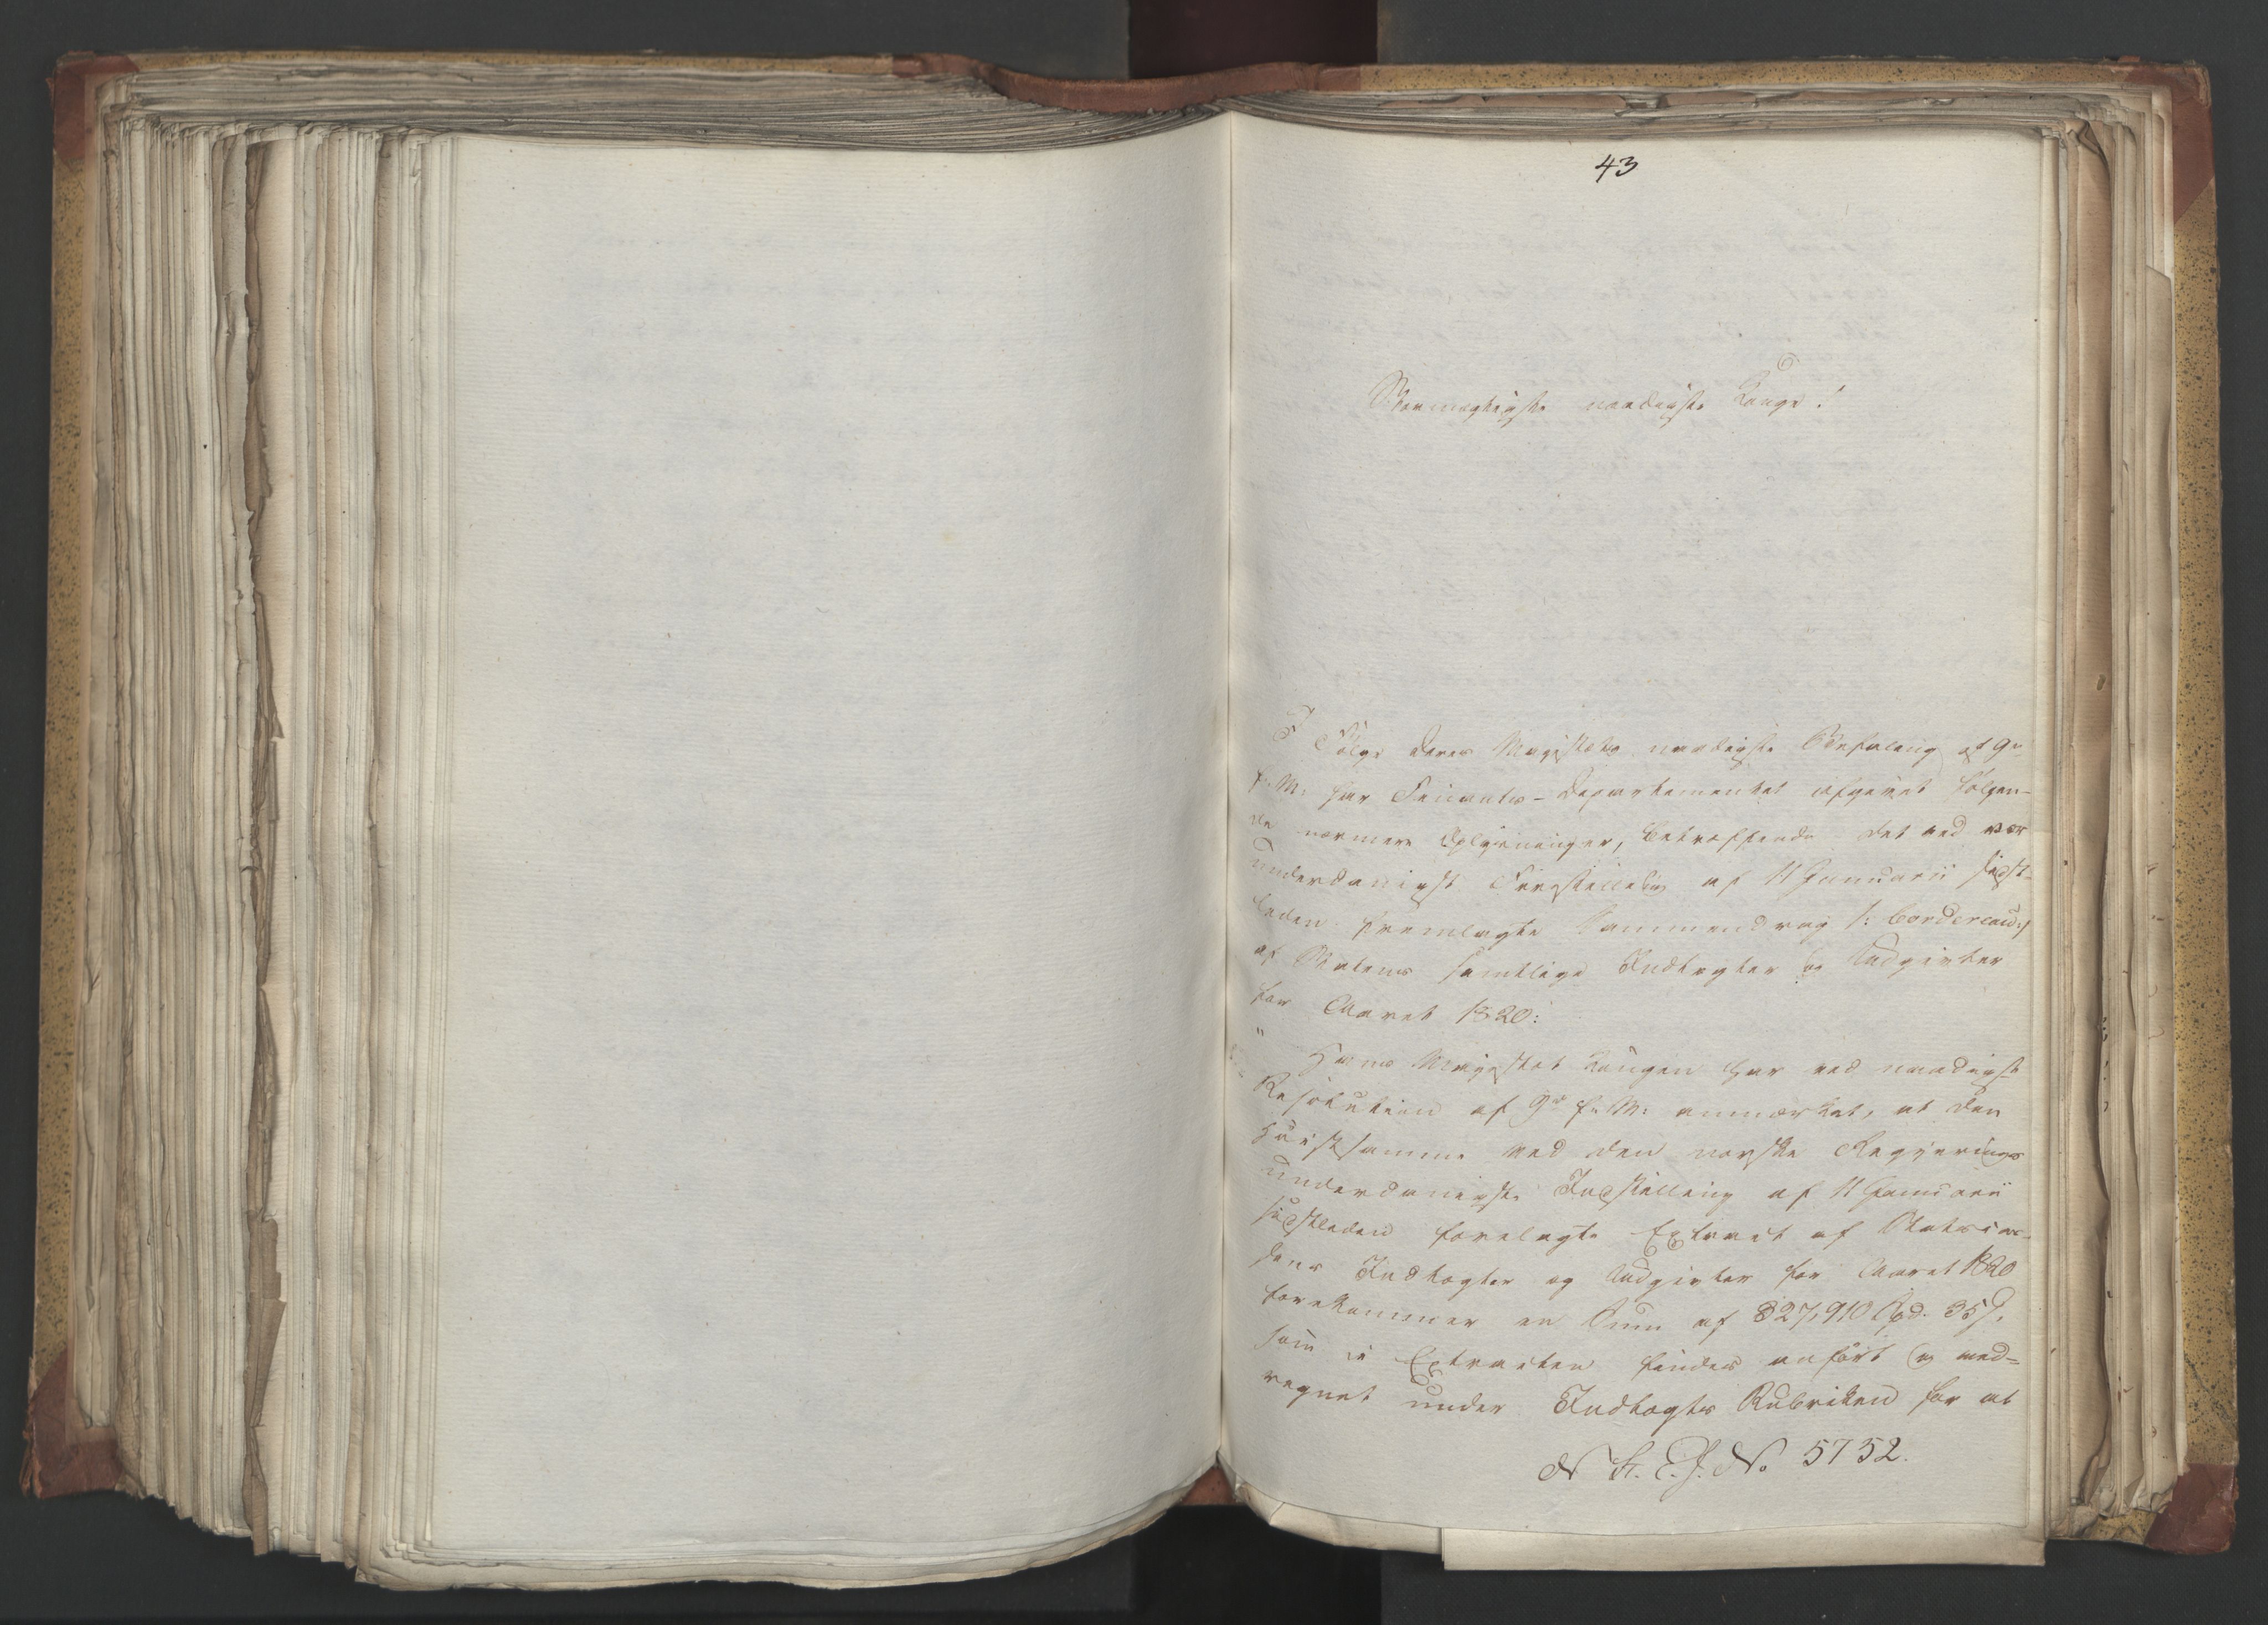 43
Stormægtigste naadigste Konge!
I Følge Deres Majestæts naadigste Befaling af 9de
f. M. har Finants-Departementet afgivet følgen-
de nærmere Oplysninger, betræffende det ved vor
underdanigste Forestilling af 11 Januarii sidst-
leden fremlagte Sammendrag /: bordereau :/
af Statens samtlige Indtægter og Udgivter
for Aaret 1820:
" Hans Majestæt Kongen har ved naadigst
Resolution af 9de f. M. anmærket, at den
Høistsamme ved den norske Regjerings
underdanigste Indstilling af 11 Januarii
sidstleden forelagte Extract af Statscas-
sens Indtægter og Udgivter for Aaret 1820
forekommer en Sum af 827,910 Spd. 35 s.
som i Extracten findes anført og med-
regnet under Indtægts Rubriken for at
N. St. E. J. No 5752.